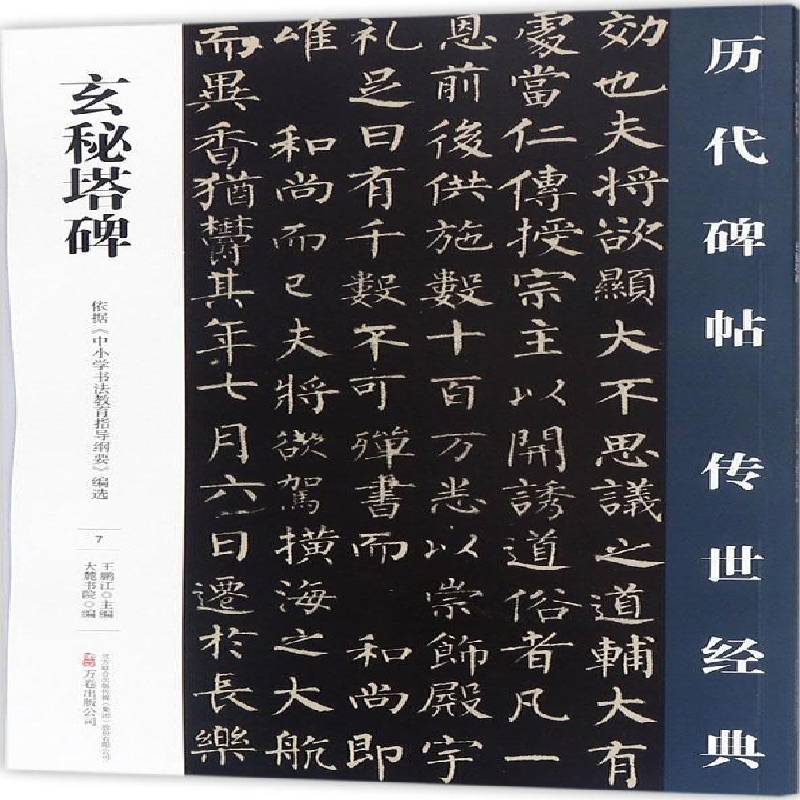 历代碑帖 传世经典
効也夫将欲顯大不思議之道輔大有
處當仁傳授宗主以開誘道俗者凡一
恩前後供施數十百万悉以崇飾殿宇
礼足日有千數不可殫書而 和尚即
唯 和尚而已夫將欲駕橫海之大航
而異香猶欝其年七月六日遷於長樂
玄秘塔碑
依据《中小学书法教育指导纲要》编选
7
王鹏江 主编
大麓书院 编
北方联合出版传媒(集团)股份有限公司
万卷出版公司